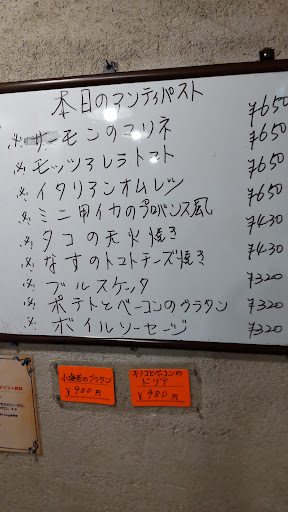 本日のアンティパスト
※サーモンのマリネ ¥650
※モッツァレラトマト ¥650
※イタリアンオムレツ ¥650
※ミニ甲イカのプロバンス風 ¥650
※タコの天火焼き ¥430
※なすのトマトチーズ焼き ¥430
※ブルスケッタ ¥320
※ポテトとベーコンのグラタン ¥320
※ボイルソーセージ ¥320
小海老のグラタン
¥900円
キノコとベーコンの
ドリア
¥980円